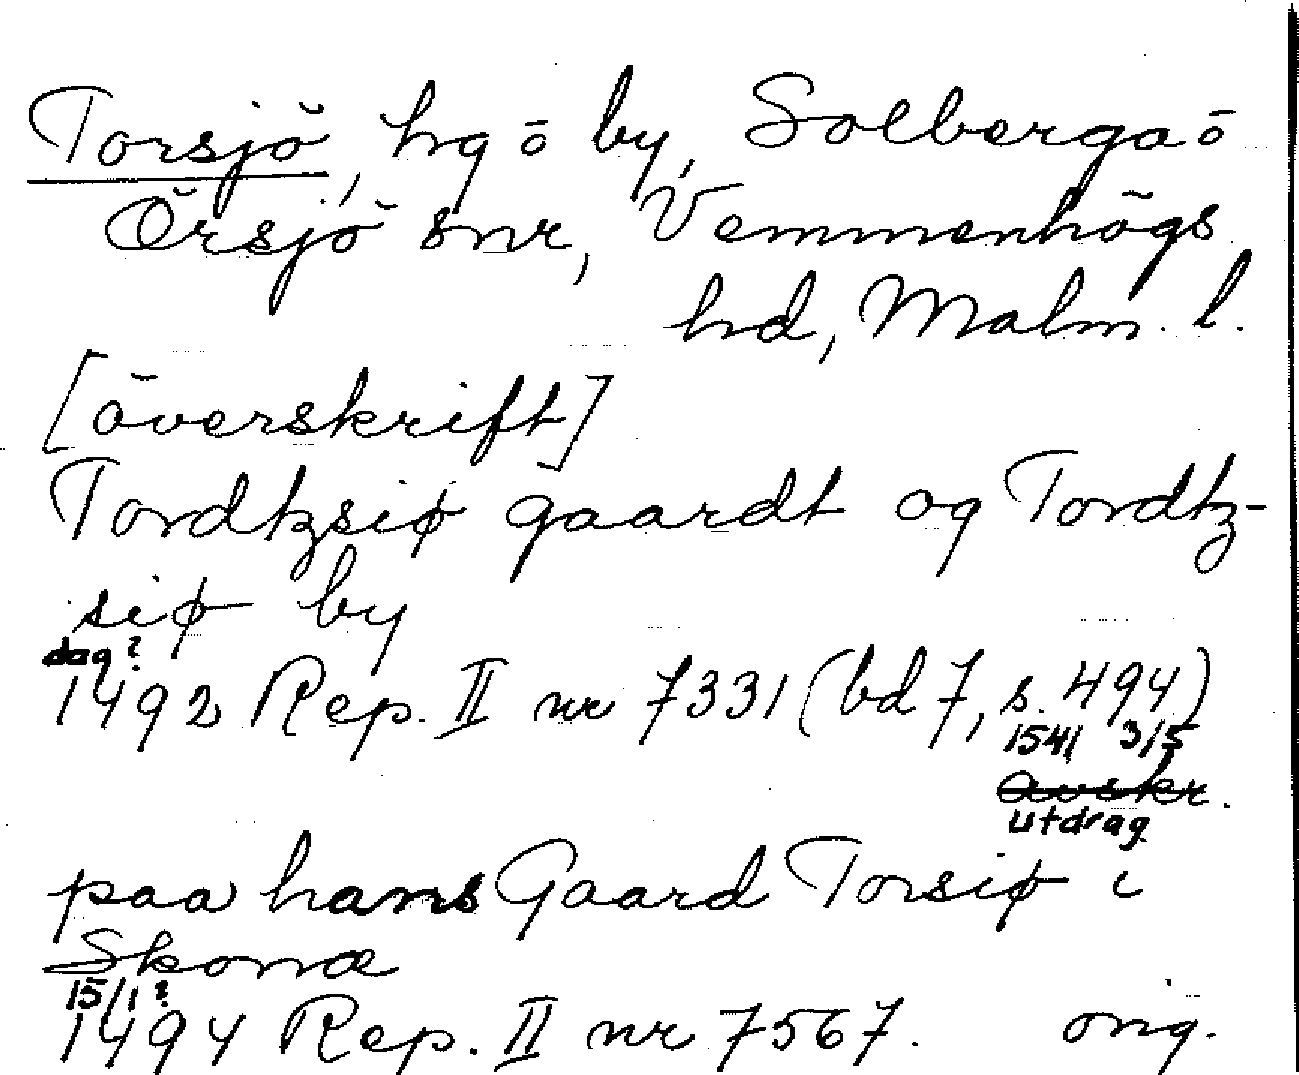 Torsjö, hg o by, Solberga o
Örsjö snr, Vemmenhögs
hd, Malm. l.
[överskrift]
Tordtzsiø gaardt og Tordtz-
siø by
dag?
1492 Rep. II nr 7331 (bd 7, s. 494)
1541 3/5
avskr.
utdrag
paa hans Gaard Torsiø i
Skonæ
15/1?
1494 Rep. II nr 7567. orig.